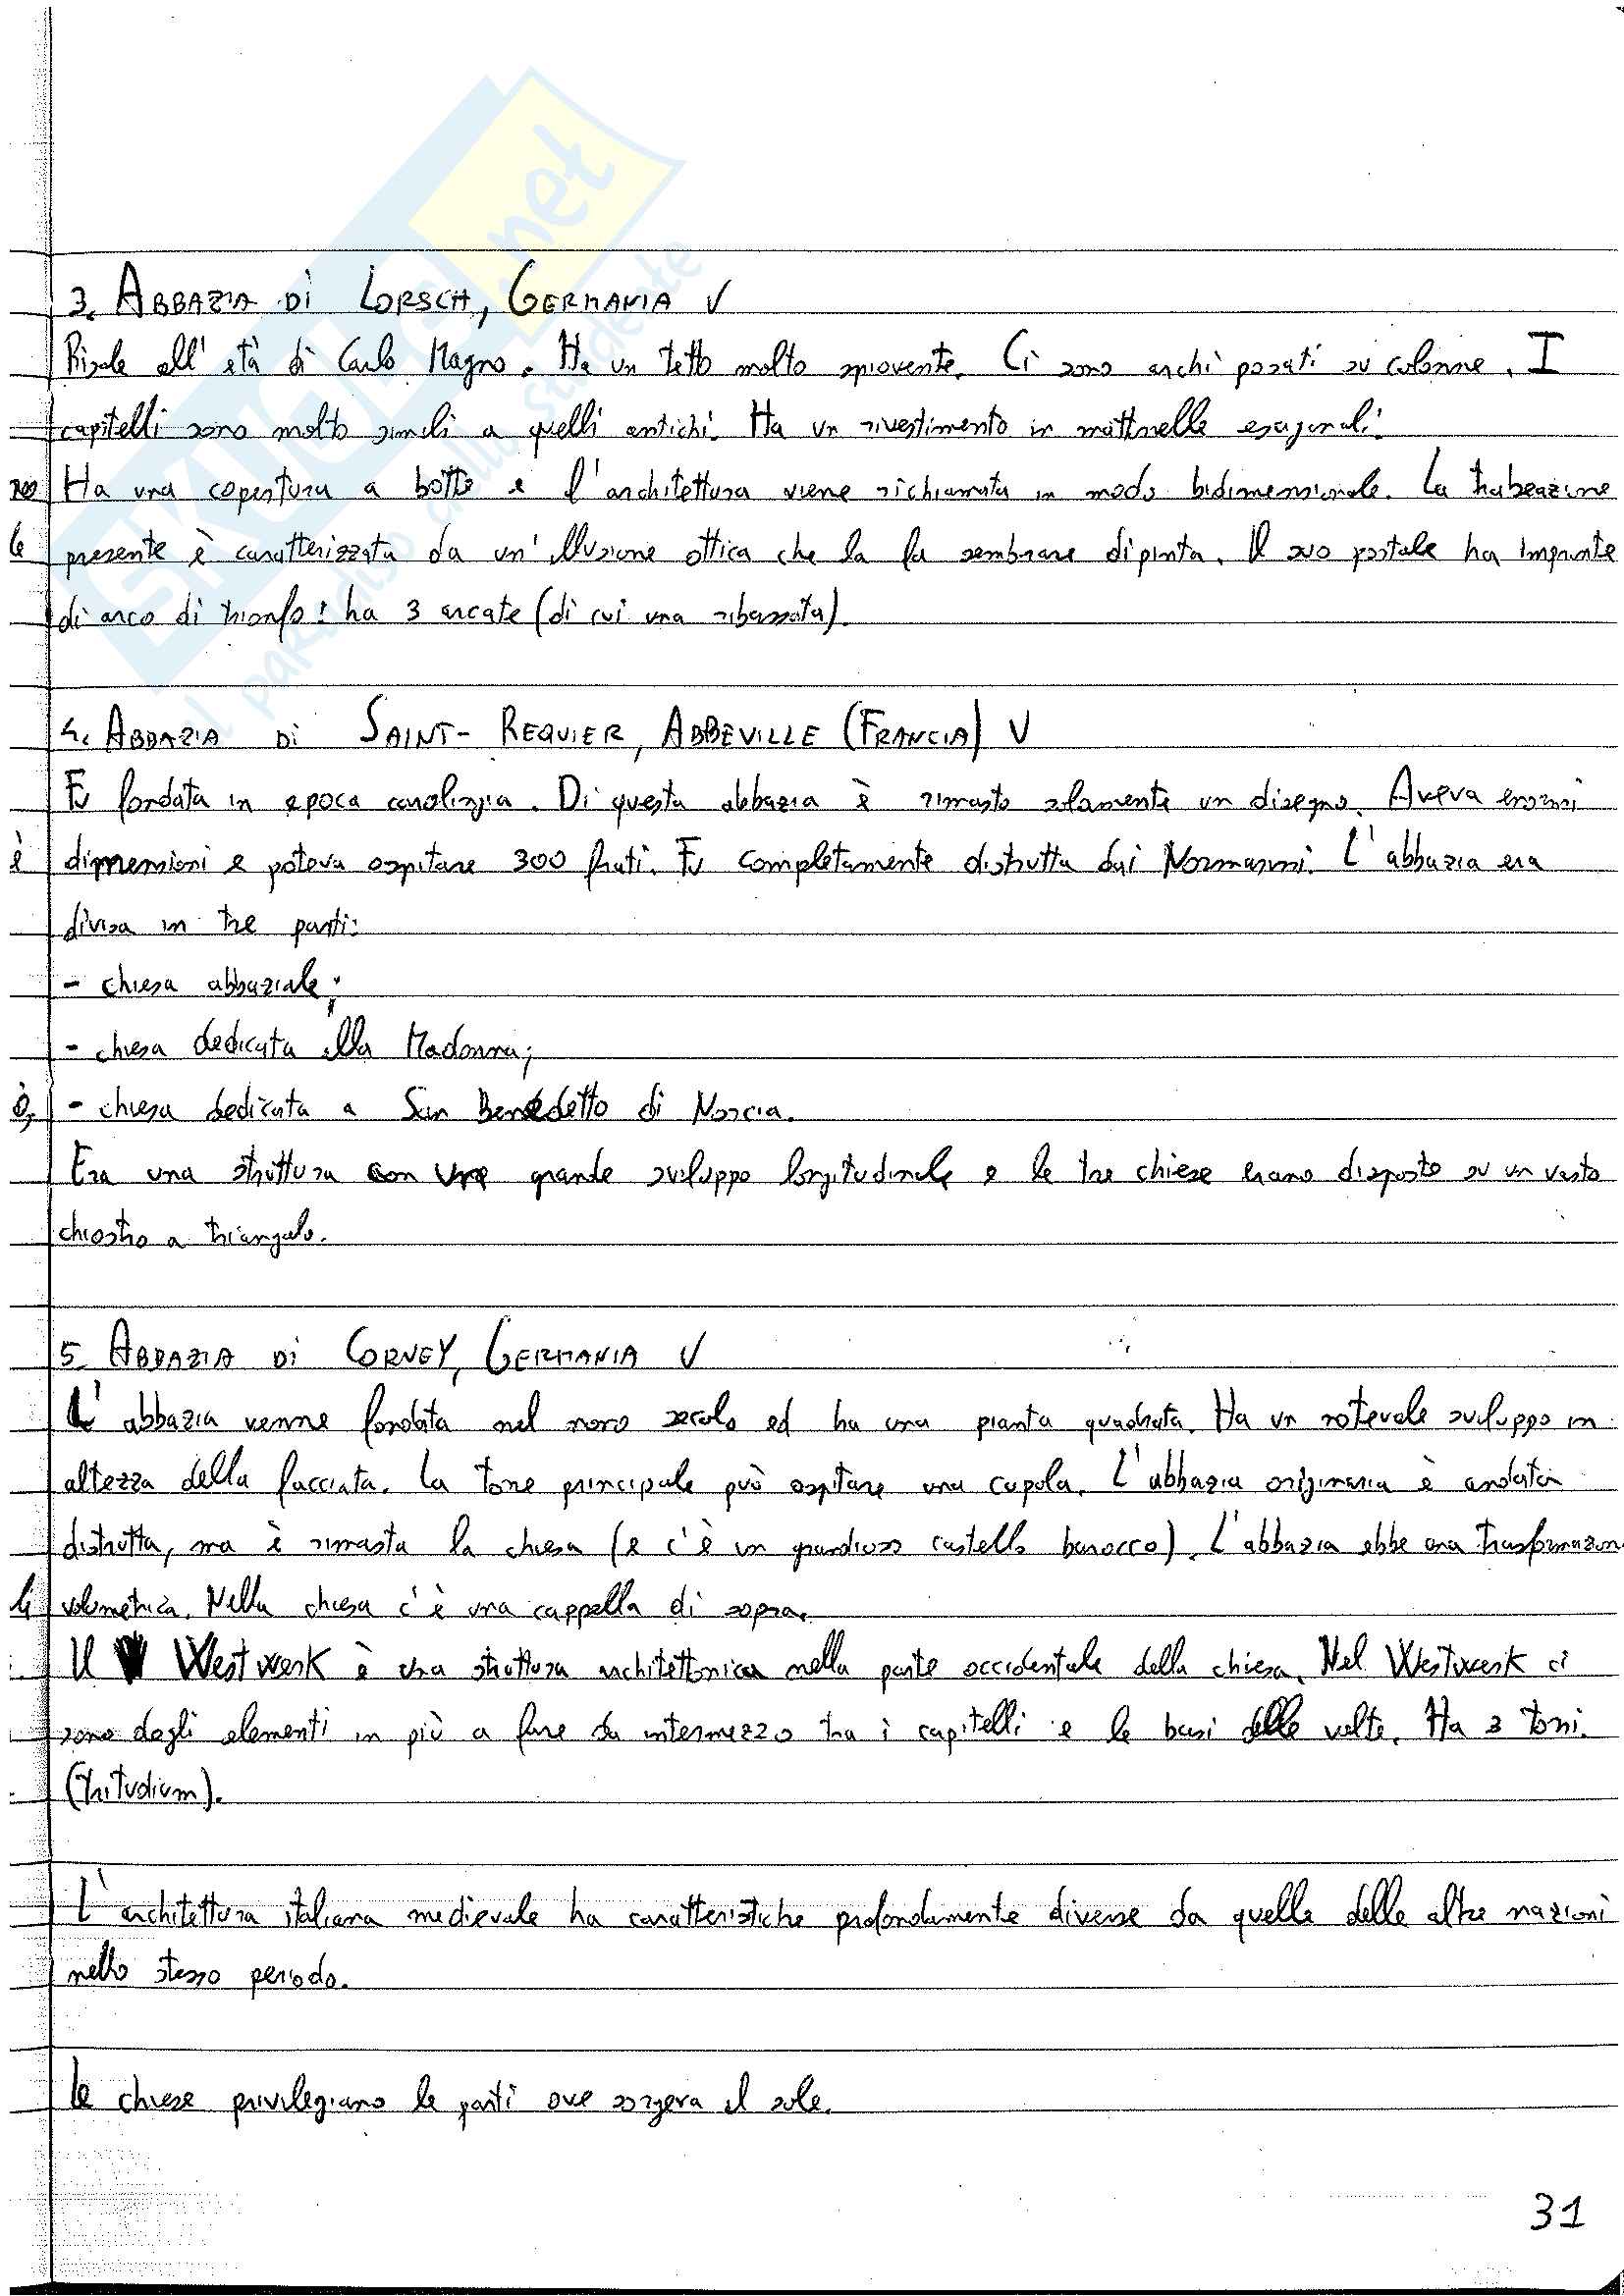 SKUOLA.net
il paradiso dello studente
3. ABBAZIA DI LORSCH, GERMANIA V
Risale all'età di Carlo Magno. Ha un tetto molto spiovente. Ci sono archi posati su colonne. I
capitelli sono molto simili a quelli antichi. Ha un rivestimento in mattonelle esagonali.
Ha una copertura a botte e l'architettura viene richiamata in modo bidimensionale. La trabeazione
presente è caratterizzata da un'illusione ottica che la fa sembrare dipinta. Il suo portale ha impronte
di arco di trionfo: ha 3 arcate (di cui una ribassata).
4. ABBAZIA DI SAINT-REQUIER, ABBEVILLE (FRANCIA) V
Fu fondata in epoca carolingia. Di questa abbazia è rimasto solamente un disegno. Aveva enormi
dimensioni e poteva ospitare 300 frati. Fu completamente distrutta dai Normanni. L'abbazia era
divisa in tre parti:
- chiesa abbaziale;
- chiesa dedicata alla Madonna;
- chiesa dedicata a San Benedetto di Norcia.
Era una struttura con une grande sviluppo longitudinale e le tre chiese erano disposte su un vasto
chiostro a triangolo.
5. ABBAZIA DI CORVEY, GERMANIA V
L'abbazia venne fondata nel nono secolo ed ha una pianta quadrata. Ha un notevole sviluppo in
altezza della facciata. La torre principale può ospitare una cupola. L'abbazia originaria è andata
distrutta, ma è rimasta la chiesa (e c'è un grandioso castello barocco). L'abbazia ebbe una trasformazion
volumetrica. Nella chiesa c'è una cappella di sopra.
Il Westwerk è una struttura architettonica nella parte occidentale della chiesa. Nel Westwerk ci
sono degli elementi in più a fare da intermezzo tra i capitelli e le basi delle volte. Ha 3 torri.
(Tritudium).
L'architettura italiana medievale ha caratteristiche profondamente diverse da quelle delle altre nazioni
nello stesso periodo.
Le chiese privilegiano le parti ove sorgeva il sole.
31